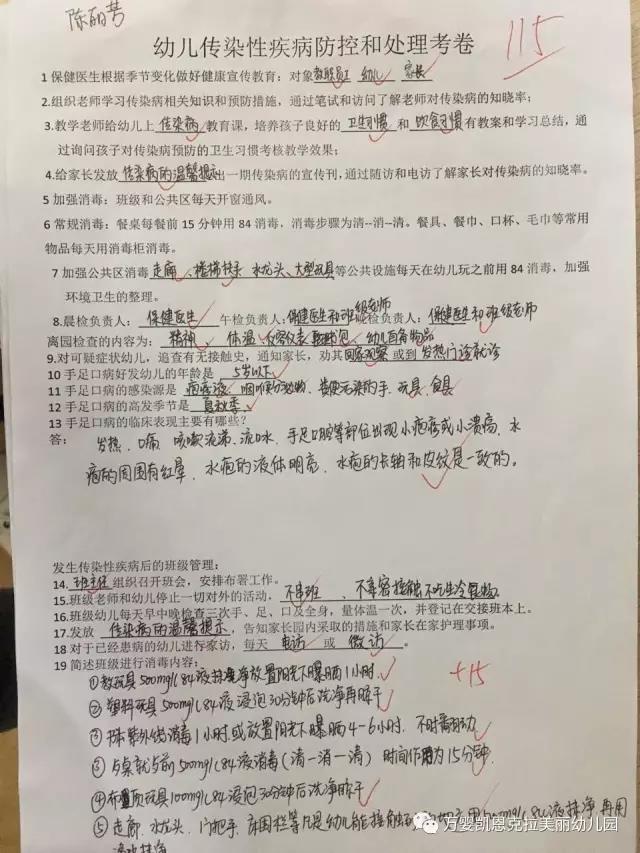 陈丽芳
幼儿传染性疾病防控和处理考卷
115
1 保健医生根据季节变化做好健康宣传教育：对象教职员工 幼儿 家长
2.组织老师学习传染病相关知识和预防措施，通过笔试和访问了解老师对传染病的知晓率；
3.教学老师给幼儿上 传染病 教育课，培养孩子良好的 卫生习惯 和 饮食习惯 有教案和学习总结，通
过询问孩子对传染病预防的卫生习惯考核教学效果；
4.给家长发放 传染病的温馨提示 出一期传染病的宣传刊，通过随访和电访了解家长对传染病的知晓率。
5 加强消毒：班级和公共区每天开窗通风。
6 常规消毒：餐桌每餐前 15 分钟用 84 消毒，消毒步骤为清--消--清。餐具、餐巾、口杯、毛巾等常用
物品每天用消毒柜消毒。
7 加强公共区消毒 走廊、楼梯扶手 水龙头、大型玩具 等公共设施每天在幼儿玩之前用 84 消毒，加强
环境卫生的整理。
8.晨检负责人： 保健医生 午检负责人：保健医生和班级老师 晚检负责人：保健医生和班级老师
离园检查的内容为： 精神、体温、仪容仪表 书包 幼儿自备物品
9.对可疑症状幼儿，追查有无接触史，通知家长，劝其 回家观察 或到 发热门诊就诊
10 手足口病好发幼儿的年龄是 5岁以下
11 手足口病的感染源是 疱疹液、咽喉分泌物、粪便污染的手、玩具、食具
12 手足口病的高发季节是 夏秋季
13 手足口病的临床表现主要有哪些？
答： 发热、口痛、咳嗽流涕、流口水、手足口腔等部位出现小疱疹或小溃疡、水
疱的周围有红晕、水疱的液体明亮、水疱的长轴和皮纹是一致的。
发生传染性疾病后的班级管理：
14. 班主任 组织召开班会，安排布署工作。
15.班级老师和幼儿停止一切对外的活动， 不串班 、 不亲密接触 不吃生冷食物
16.班级幼儿每天早中晚检查三次手、足、口及全身，量体温一次，并登记在交接班本上。
17.发放 传染病的温馨提示 ，告知家长园内采取的措施和家长在家护理事项。
18 对于已经患病的幼儿进行家访，每天 电访 或 微访 。
19 简述班级进行消毒内容：
+15
①教玩具500mg/L 84液抹净放置阳光下曝晒1小时
②塑料玩具500mg/L 84液浸泡30分钟后洗净再晾干
③ 紫外线消毒1小时.或放置阳光下曝晒4-6小时.不时翻动
③ 桌就餐前500mg/L 84液消毒（清-消-清） 时间作用为15分钟.
④布置质玩具100mg/L 84液浸泡30分钟后洗净晾干
⑤走廊、水龙头、门把手、床围栏等凡是幼儿能接触 用 mg/L 84液抹净再用
清水抹净
万婴凯恩克拉美丽幼儿园